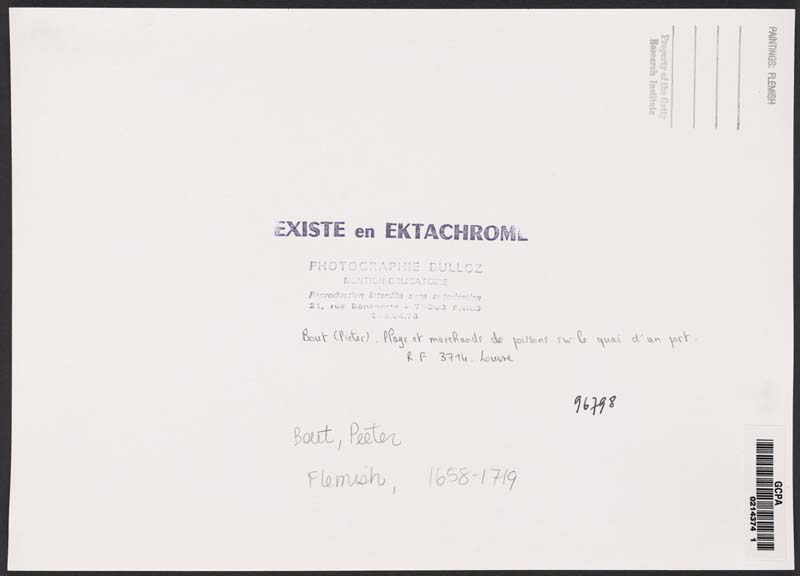 PAINTINGS: FLEMISH
Property of the Getty
Research Institute
EXISTE en EKTACHROME
PHOTOGRAPHIE BULLOZ
MENTION OBLIGATOIRE
Reproduction interdite sans autorisation
21, rue Bonaparte - 75006 PARIS
Bout (Pieter). Plage et marchands de poissons sur le quai d'un port.
R.F 3714. Louvre
96798
Bout, Peeter
Flemish, 1658-1719
GCPA
0214374 1